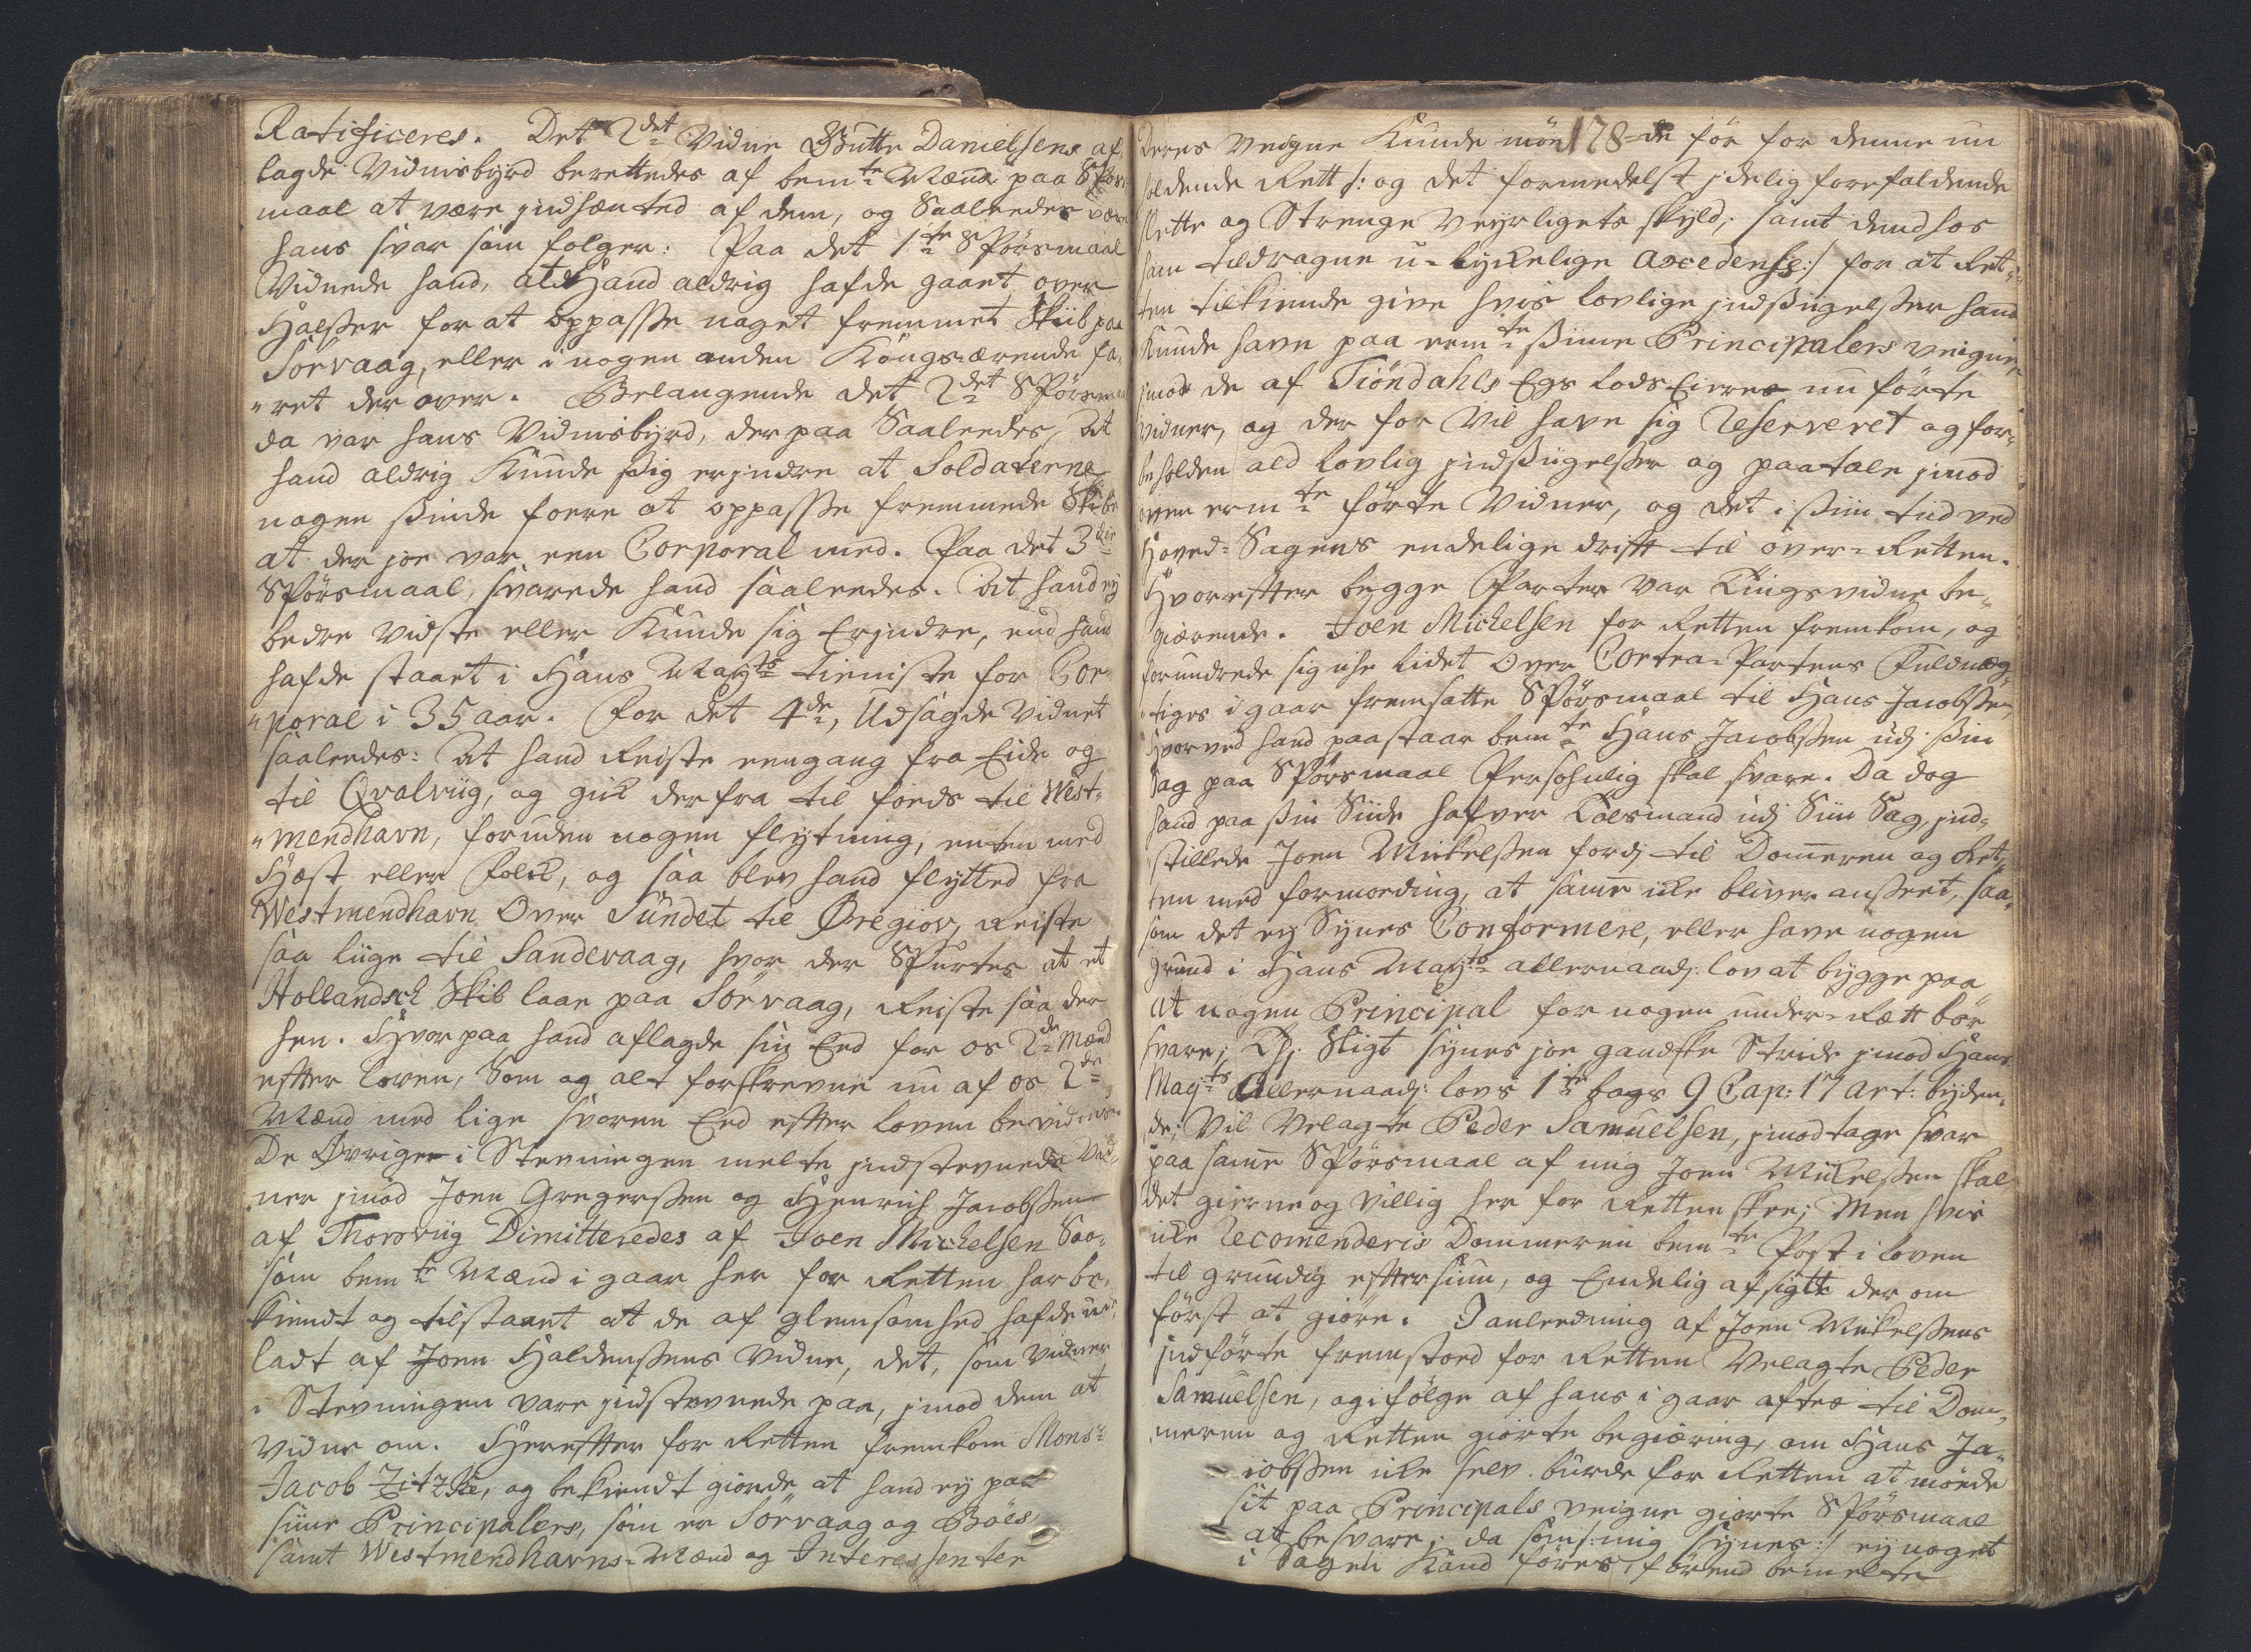 Ratificeres. Det 2det Vidne Gutte Danielsens af-
lagde Vidnisbyrd berettedes af bemte Mænd paa Spörs-
maal at være indhændted af dem, og Saaledes være
hans svar som følger: Paa det 1te Spörsmaal
Vidnede hand, at Hand aldrig hafde gaaet over
Halsser for at oppasse noget fremmet Skiib paa
Sörvaag, eller i nogen anden Kongs ærende fa-
"ret der over. Belangende det 2det Spörsmaal
da var hans Vidnisbyrd, der paa Saaledes, At
hand aldrig Kunde sig erindre at Soldaterne
nogen sinde foere at oppasse fremmede Skibe
at der joe var een Corporal med. Paa det 3die
Spörsmaal, svarede hand saaledes. At hand ey
bedre vidste eller Kunde sig Erindre, end hand
hafde staaet i Hans Mayts tieniste for Cor-
"poral i 35 aar. For det 4de, Udsagde Vidnet
saaledes: At hand Reiste eengang fra Eide og
til Qvalviig, og gik derfra til foeds til West-
"mendhavn, foruden nogen flytning, enten med
Hæst eller Folck, og saa blev hand flytted fra
Westmendhavn Over Sundet til Øregiov, Reiste
saa liige til Sandevaag, hvor der Spurtes at et
Hollandsch Skib laae paa Sörvaag, Reiste saa der
hen. Hvorpaa hand aflagde sin Eed for os 2de Mænd
efter loven, Som og alt forskrevne nu af os 2de
Mænd med lige svoren Eed efter loven bevidnes.
De Øvrige i Stevningen melte indstevnede Vid-
ner imod Joen Gregerssen og Henrich Jacobssen
af Thorsviig Dimitteredes af Joen Michelsen Saa-
som bemte Mænd i gaar her for Retten har be-
kiendt og tilstaaet at de af glemsomhed hafde ud-
ladt af Joen Haldenssens Vidne, det, som vidner
i Stevningen vare indstevnede paa, imod dem at
vidne om. Herefter for Retten fremkom Monsr
Jacob Zitzke, og bekiendt giorde at hand ey paa
siine Principalers, som er Sörvaag og Böes
samt Westmendhavns-Mænd og Interessenter
178
Deres veigne Kunde möde för for denne nu
holdende Rett /: og det formedelst idelig forefaldende
slette og Strenge veyrligets skyld, samt dend hos
ham tildragne u-lyckelige Axcedense :/ for at Ret-
ten tilkiende give hvis lovlige indsigelsser hand
Kunde have paa ermte siine Principalers veigne,
imod de af Tiöndahls Egs lods Eiere nu förte
vidner, og der for vil have sig Reserveret og for-
beholden ald lovlig indsigelsser og paatale imod
oven ermte förte Vidner, og det i siin tid ved
Hoved-Sagens endelige drift til over-Retten.
Hvorefter begge Parter var Tingsvidne be-
giærende. Joen Michelsen for Retten fremkom, og
forundrede sig icke lidet Over Contra-Partens Fuldmæg-
"tiges i gaar fremsatte Spörsmaal til Hans Jacobssen,
hvorved hand paastaar bemte Hans Jacobssen udi sin
Sag paa Spörsmaal Persohnlig skal svare. Da dog
hand paa sin Siide hafver Talsmand udi Siin Sag, ind-
stillede Joen Mickelssen fordi til Dom̅eren og Ret-
ten med formoeding, at sam̅e icke bliver ansseet, saa-
som det ey Synes Conformere, eller have nogen
grund i Hans Mayts allernaadi: lov at bygge paa
At nogen Principal for nogen under-Rætt bör
svare; Thi Sligt synes joe gandske Stride imod Hans
Mayts Allernaadi: lovs 1te bogs 9 Cap: 17 Art: byden-
de; Vil Velagte Peder Samuelsen, imodtage svar
paa sam̅e Spörsmaal af mig Joen Mickelssen skal
det gierne og villig her for Retten skee; Men hvis
icke Recom̅enderis Dommeren bemte Post i loven
til grundig eftersiun, og Endelig afsigt der om
först at giöre. I anleedning af Joen Mickelssens
indförte fremstoed for Retten Velagte Peder
Samuelsen, og ifölge af hans i gaar aftes til Dom-
meren og Retten giorte begiæring, om Hans Ja-
cobssen icke selv burde for Retten at möede
sit paa Principals veigne giorte Spörsmaal
at besvare; da som /: mig synes :/ ey noget
i Sagen Kand föres, förend bemelte